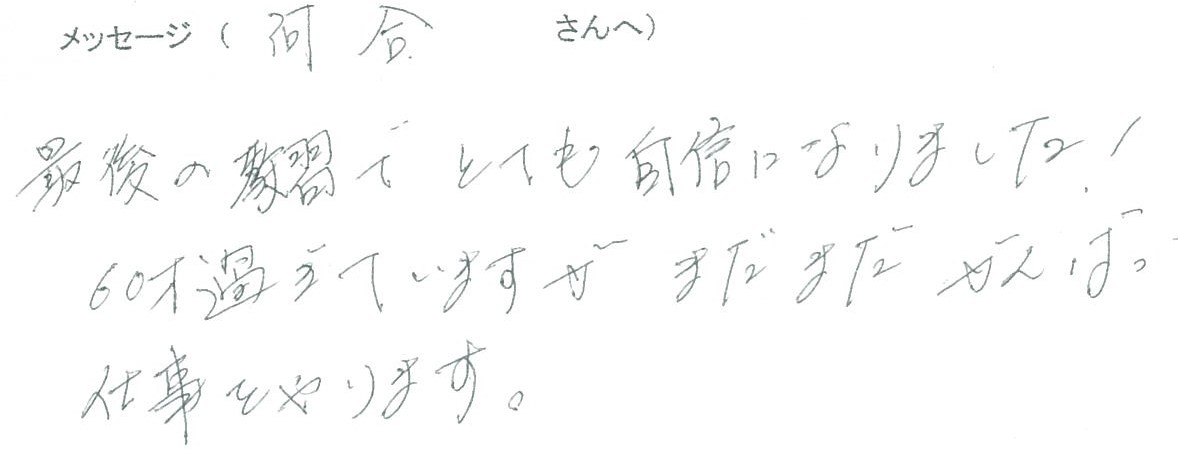 メッセージ（河合 さんへ）
最後の教習で とても自信になりました！
60才過ぎていますが まだまだ がんばっ
仕事をやります。